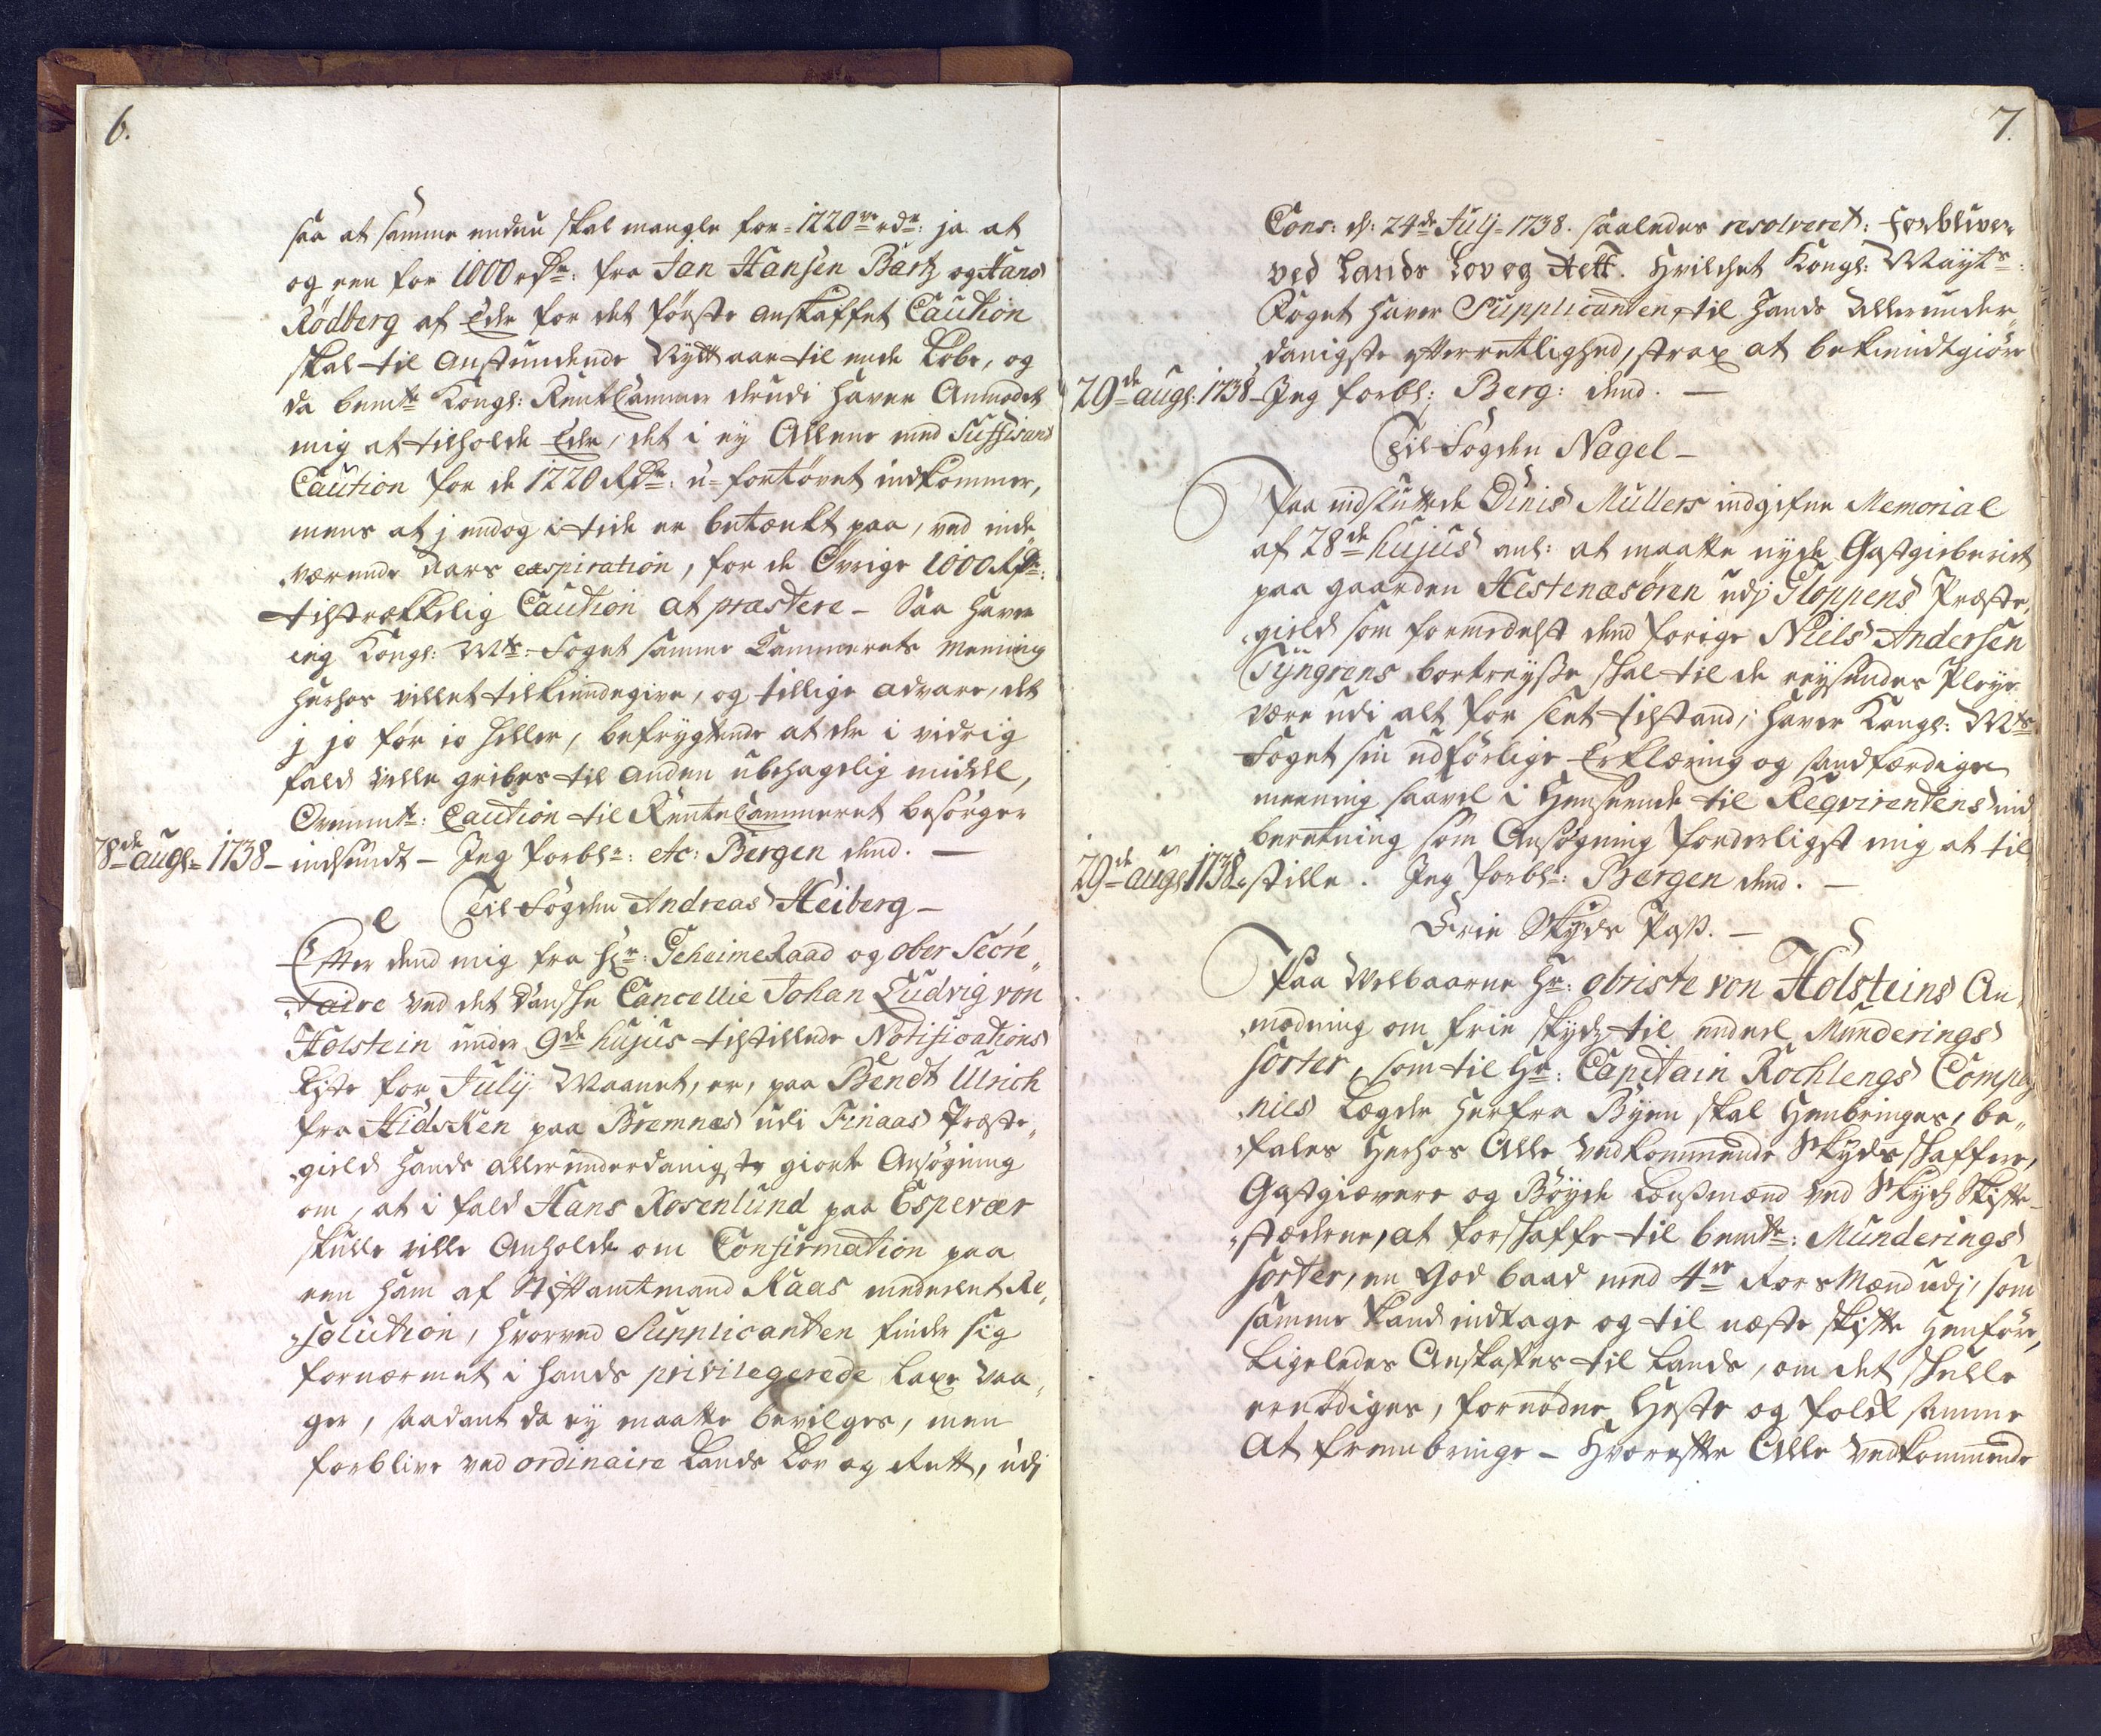 6.
saa at samme endnu skal mangle for 1220ve rdr: ja at
og een for 1000 rdr: fra Jan Hansen Bartz og Hans
Rödberg af Eder for det förste anskaffet Caution
skal til anstundende Nyttaar til ende Löbe, og
da bemte Kongl: RentCammer derudi haver Anmodet
mig at tilholde Eder, det i ey Allene med Suffisant
Caution for de 1220 Rdr: u-fortövet indkommer,
mens at j endog i tide er betænkt paa, ved inde„
„værende Aars exspiration, for de Övrige 1000 Rdr:
tilstrækkelig Caution at præstere - Saa haver
ieg Kongl: Mts: Foget samme Kammerets meening
herhos villet tilkiendegive, og tillige advare, det
j jo för io heller, befrygtende at der i vidrig
fald ville gribes til anden ubehagelig middel,
Ovenmte: Caution til RenteCammeret besörger
28de augs: 1738 - indsendt - Jeg forblr: etc: Bergen dend. —
Til Fogden Andreas Heiberg -
Efter dend mig fra Hr: GeheimeRaad og ober Secre„
„taire ved det danske Cancellie Johan Ludvig von
Holstein under 9de hujus tilstillede Notifications
Liste for Julij Maanet, er, paa Bendt Ulrich
fra Hidsken paa Bremnes udi Finaas Præste„
„gield hands allerunderdanigste giorte Ansögning
om, at i fald Hans Rosenlund paa Espevær
skulle ville Anholde om Confirmation paa
een ham af Stiftamtmand Kaas meddelt Re„
„solution, hvorved Supplicanten finder sig
fornærmet i hands privilegerede Laxe Vaa„
ger, saadant da ey maatte bevilges, men
forblive ved ordinaire Lands Lov og Rett, udj
7.
Cons: d: 24de Julj 1738. saaledes resolveret: Forbliver
ved Lands Lov og Rett. Hvilchet Kongl: Mayts:
Foget haver Supplicanten, til hands Allerunder„
danigste efterretlighed, strax at bekiendtgiöre
29de augs: 1738 - Jeg forbl: Berg: dend. —
Til Fogden Nagel -
Paa indsluttede Dinis Müllers indgifne Memorial
af 28de hujus anl: at maatte nyde Gastgieberiet
paa gaarden Hestenæsören udj Gloppens Præste„
„gield som formedelst dend forige Niels Andersen
Tÿngrens bortreyse skal til de reysendes Pleye
være udi alt for slet tilstand; haver Kongl: Mts:
Foget sin udförlige Erklæring og sandfærdige
meening saavel i henseende til Reqvirentens ind
beretning som Ansögning forderligst mig at til
29de augs 1738 „stille. Jeg forblr: Bergen dend. —
Frie Skyds Pass. —
Paa Velbaarne Hr: obriste von Holsteins An„
„modning om frie skyds til endeel Munderings
sorter, som til Hr: Capitain Kochlengs Compag
„nies Lægder herfra Byen skal henbringes, be„
„fales herhos Alle Vedkommende Skydsskaffere,
Gastgievere og Böyde Lensmænd ved Skyds Skifte
„stæderne, at forskaffe til bemte: Munderings
sorter, en God baad med 4re Rors Mænd udj, som
samme kand indtage og til næste skifte henföre,
Ligeledes Anskaffes til Lands, om det skulle
ernödiges, fornödne Heste og folck samme
at frembringe - Hvorefter Alle Vedkommende